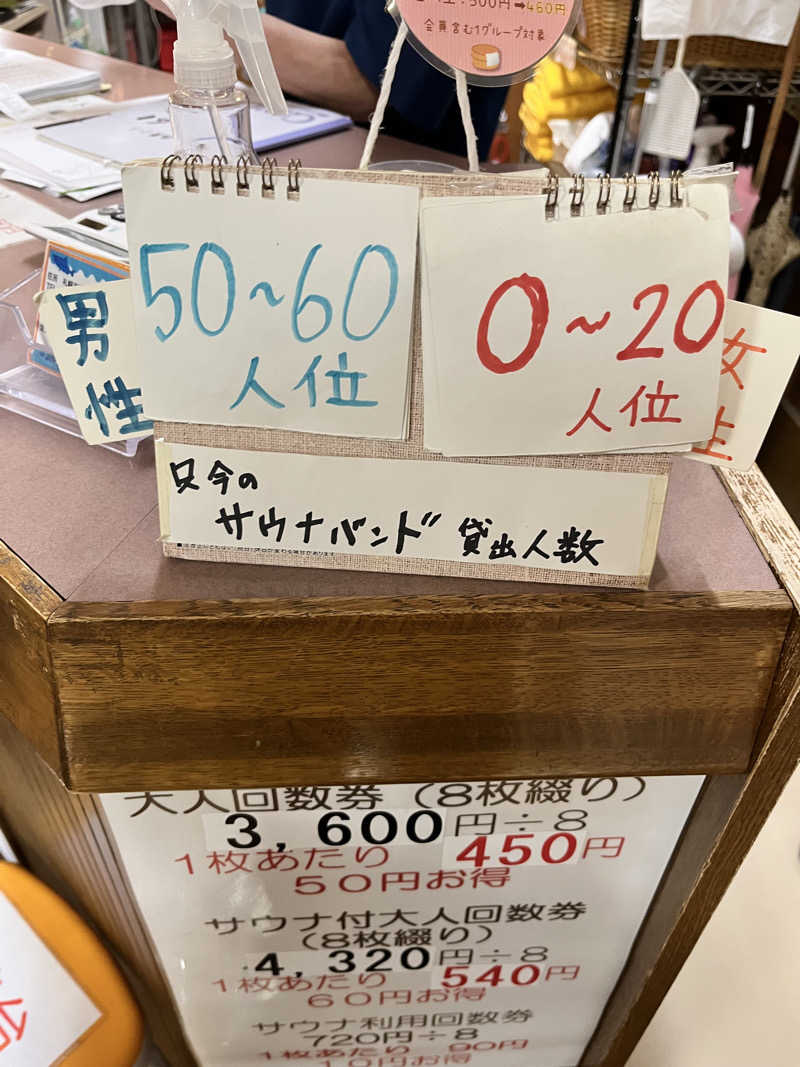 500円→460円
会員含む1グループ対象
男性
50～60
人位
0～20
人位
女性
只今の
サウナバンド 貸出人数
大人回数券（8枚綴り）
3,600円÷8
1枚あたり 450円
50円お得
サウナ付大人回数券
（8枚綴り）
4,320円÷8
1枚あたり 540円
60円お得
サウナ利用回数券
720円÷8
1枚あたり 90円
10円お得